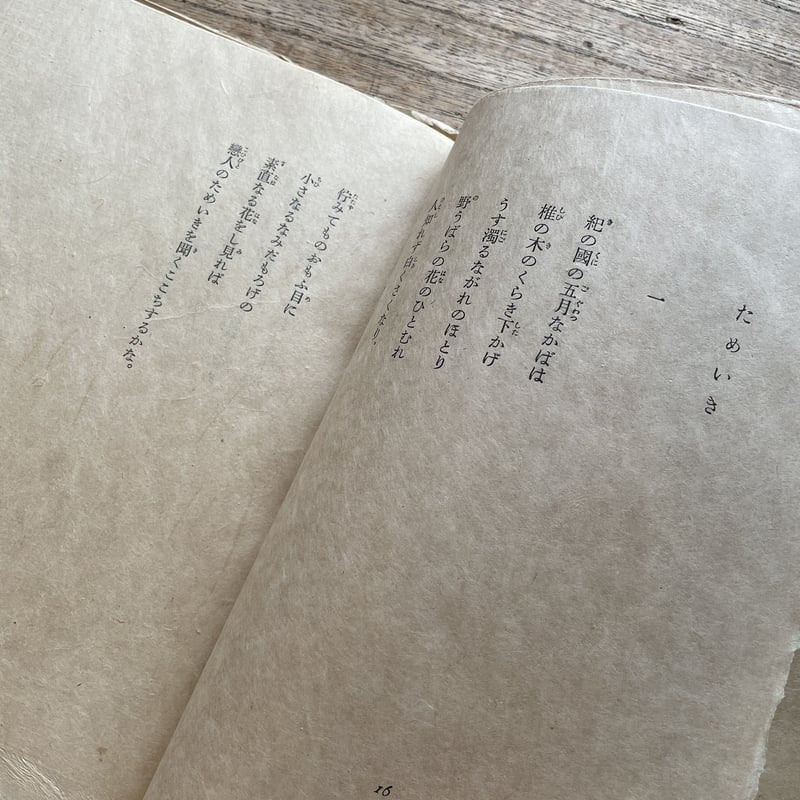 ためいき
一
紀の國の五月なかばは
椎の木のくらき下かげ
うす濁るながれのほとり
野うばらの花のひとむれ
人知れず白くさくなり、
佇みてものおもふ目に
小さなるなみだもろげの
素直なる花をし見れば
戀人のためいきを聞くここちするかな。
16